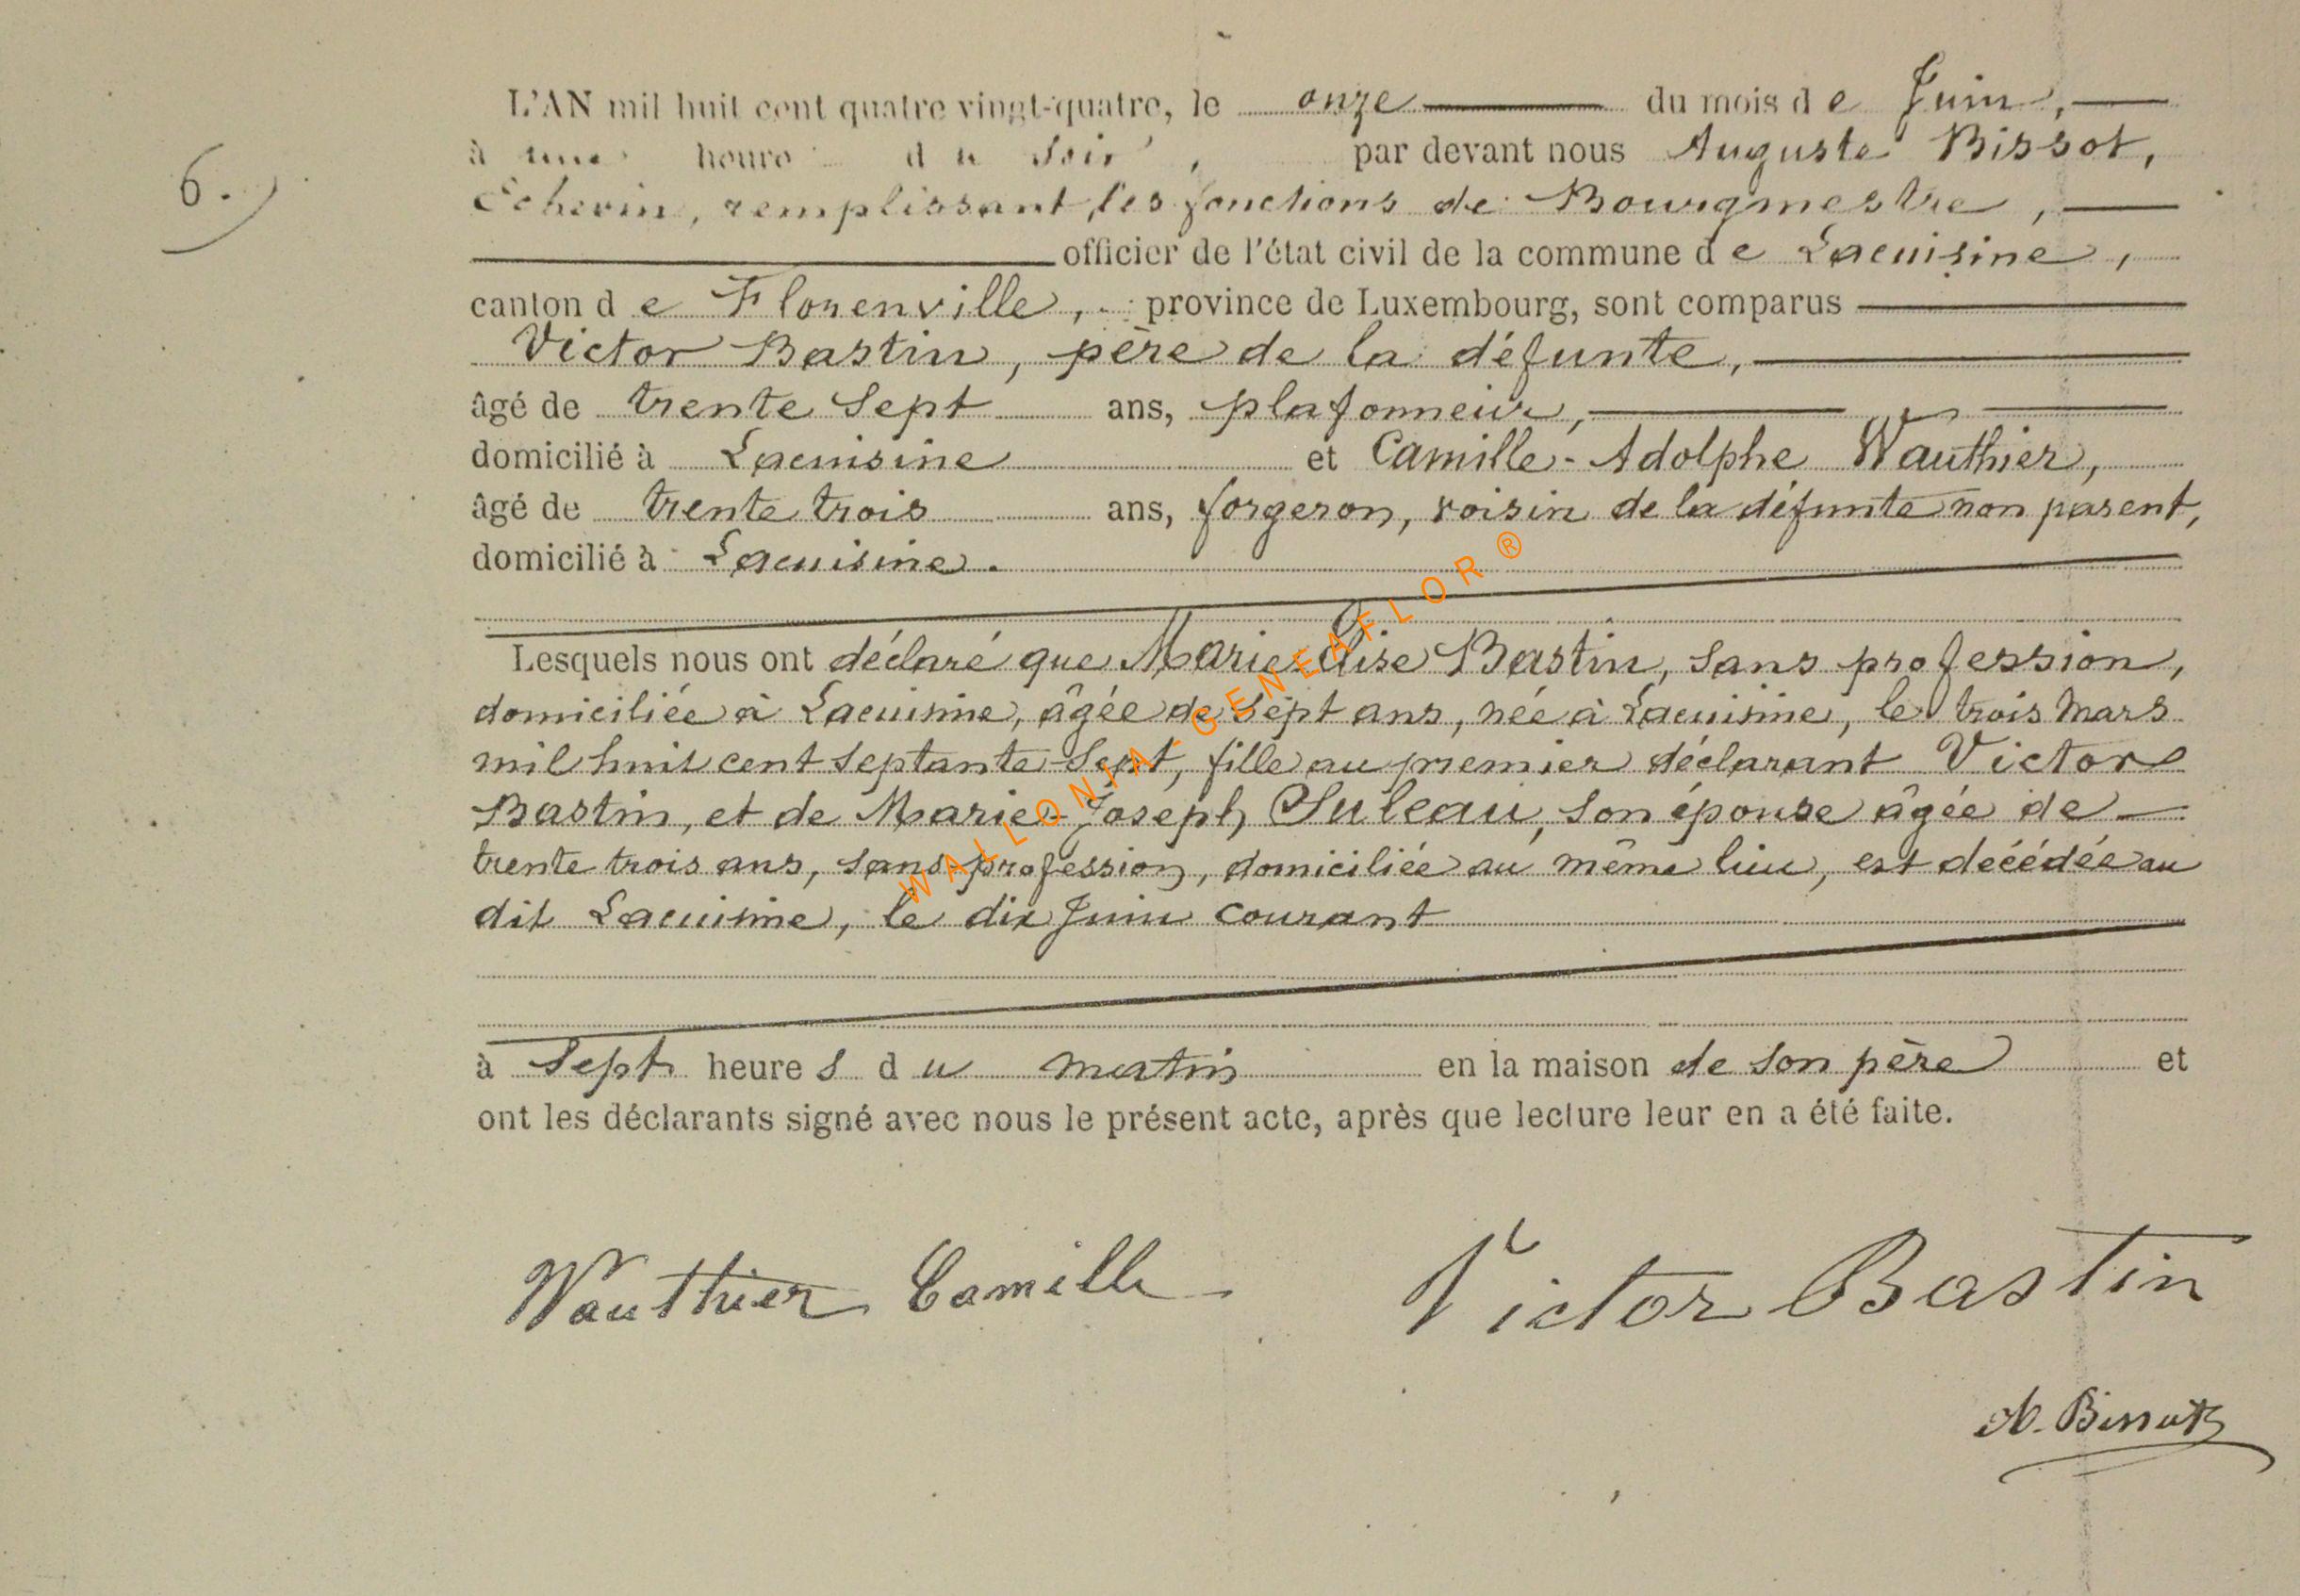 L'AN mil huit cent quatre vingt-quatre, le onze du mois de Juin,
à une heure du soir, par devant nous Auguste Bissot,
6.
Echevin, remplissant les fonctions de Bourgmestre,
officier de l'état civil de la commune de Lacuisine,
canton de Florenville, province de Luxembourg, sont comparus
Victor Bastin, père de la défunte,
âgé de trente sept ans, plafonneur,
domicilié à Lacuisine et Camille-Adolphe Wauthier,
âgé de trente trois ans, forgeron, voisin de la défunte non parent,
domicilié à Lacuisine.
Lesquels nous ont déclaré que Marie-Elise Bastin, sans profession,
domiciliée à Lacuisine, âgée de sept ans, née à Lacuisine, le trois Mars
mil huit cent septante-sept, fille au premier déclarant Victor
Bastin, et de Marie-Joseph Suleau, son épouse âgée de
trente trois ans, sans profession, domiciliée au même lieu, est décédée au
dit Lacuisine, le dix Juin courant
à sept heures du matin en la maison de son père et
ont les déclarants signé avec nous le présent acte, après que lecture leur en a été faite.
Wauthier Camille Victor Bastin
A. Bissot
WALLONIA-GENEAFLOR®